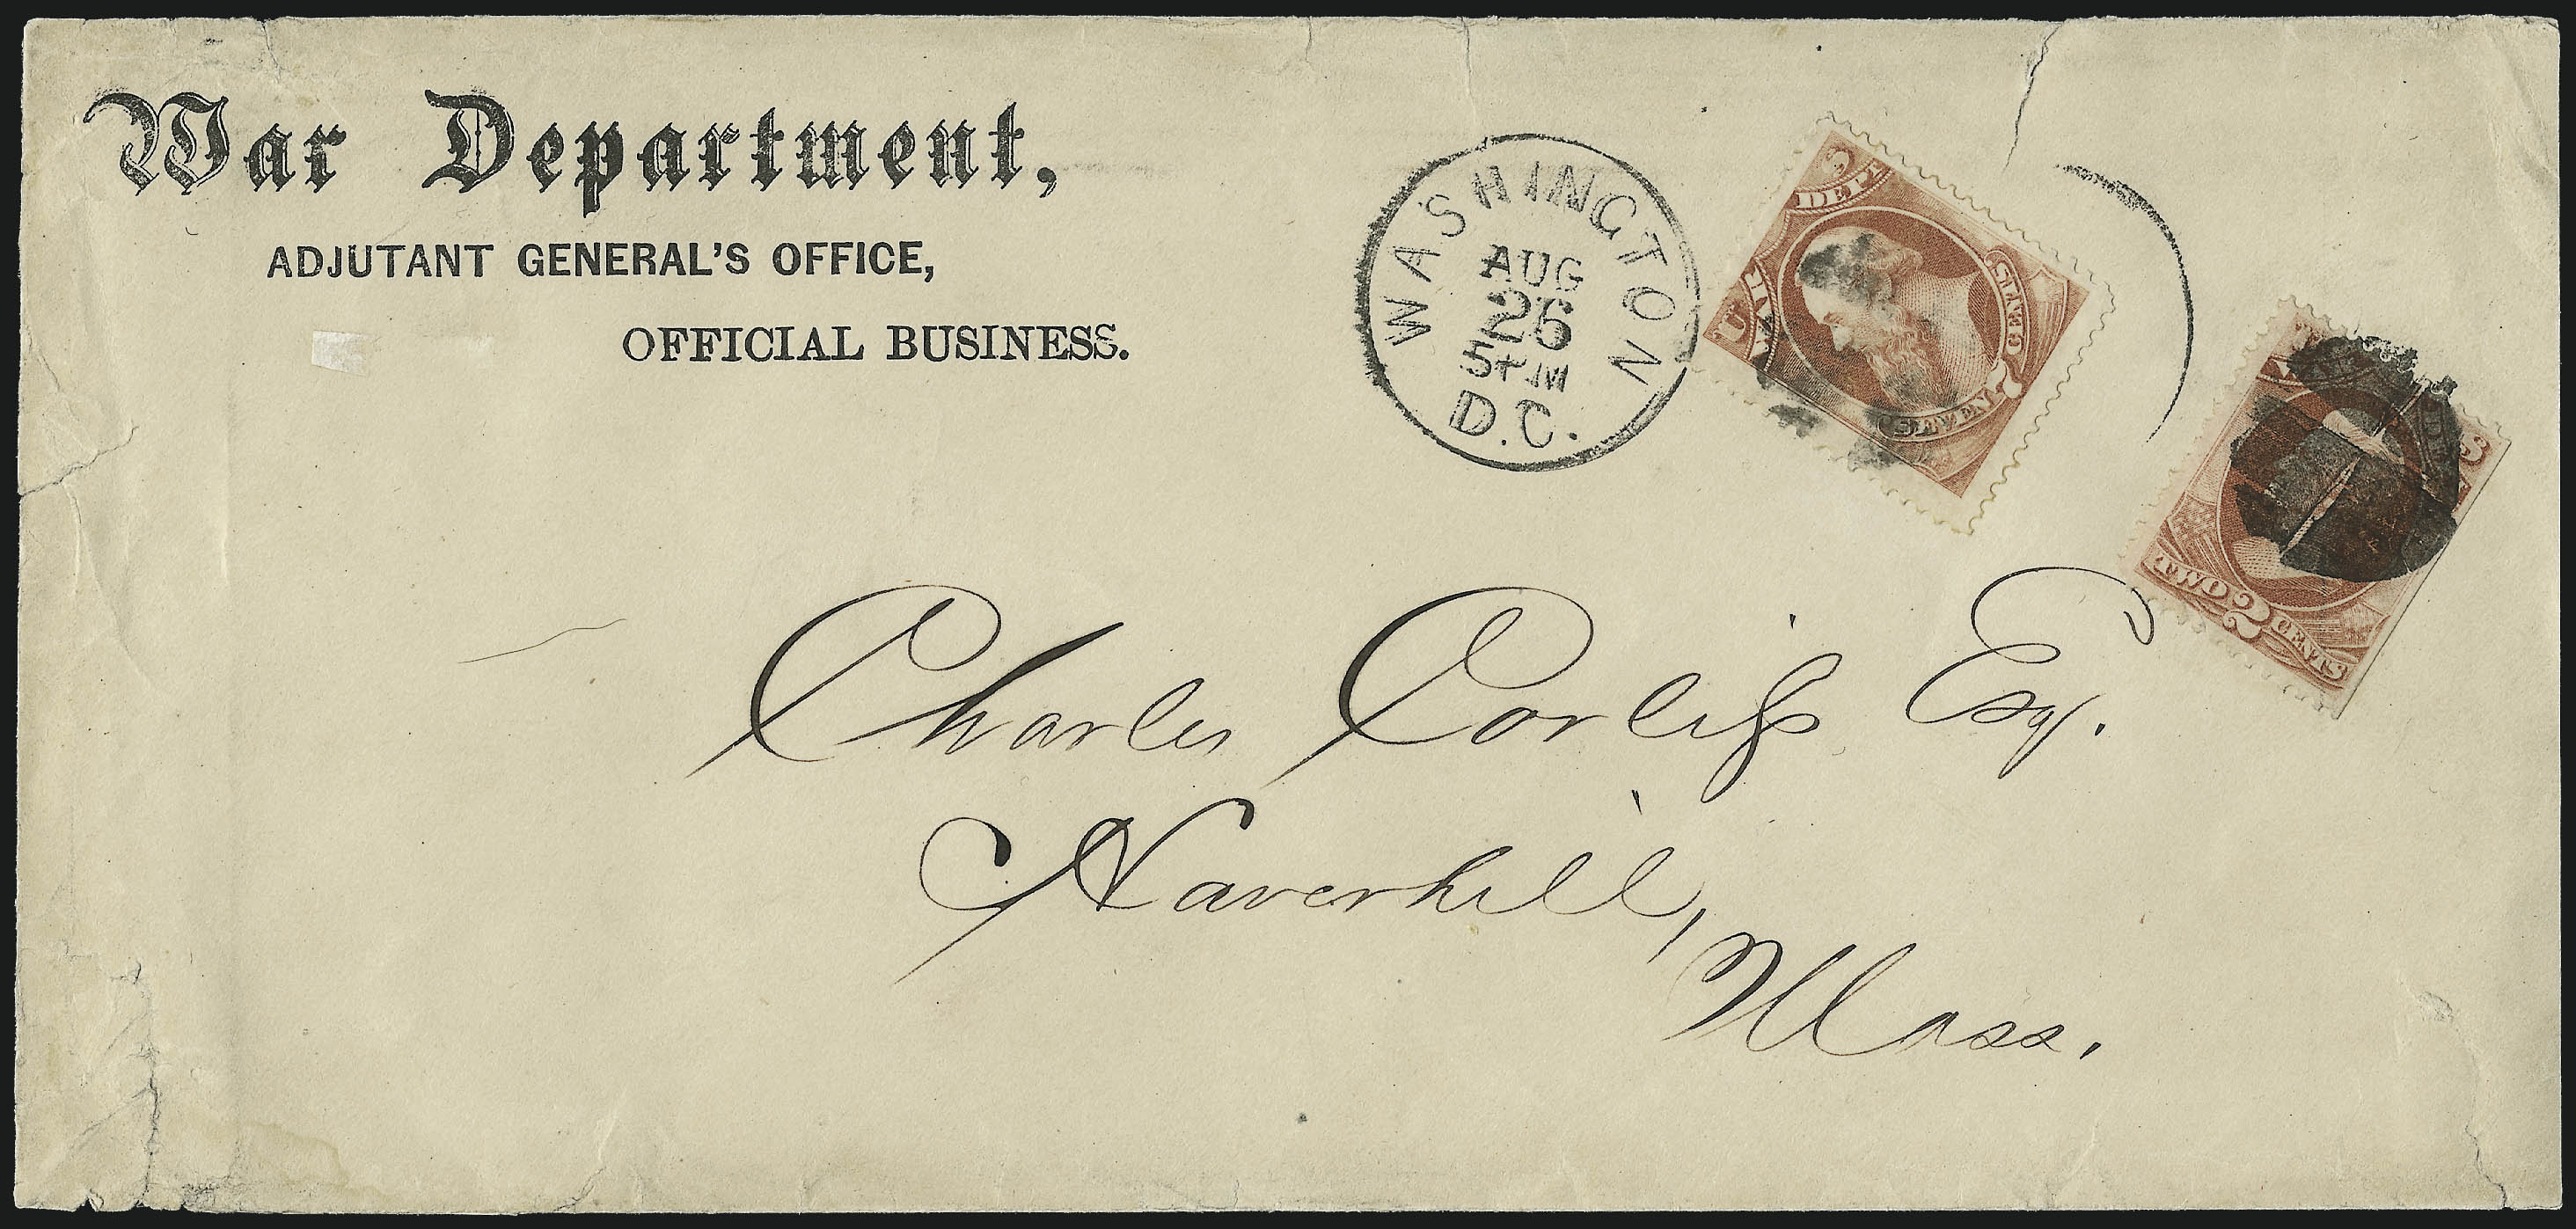 War Department,
ADJUTANT GENERAL'S OFFICE,
OFFICIAL BUSINESS.
WASHINGTON
AUG
26
5 PM
D.C.
DEPT
SEVEN 7 CENTS
TWO 2 CENTS
Charles Corliſs Esq.
Haverhill,
Mass.